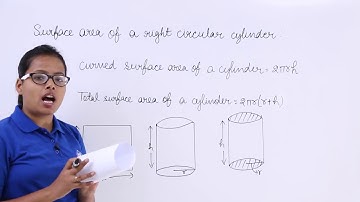 Surface area of a right circular cylinder.
Curved surface area of a cylinder = 2πrh
Total surface area of a cylinder = 2πr(r+h)
h
r
h
r